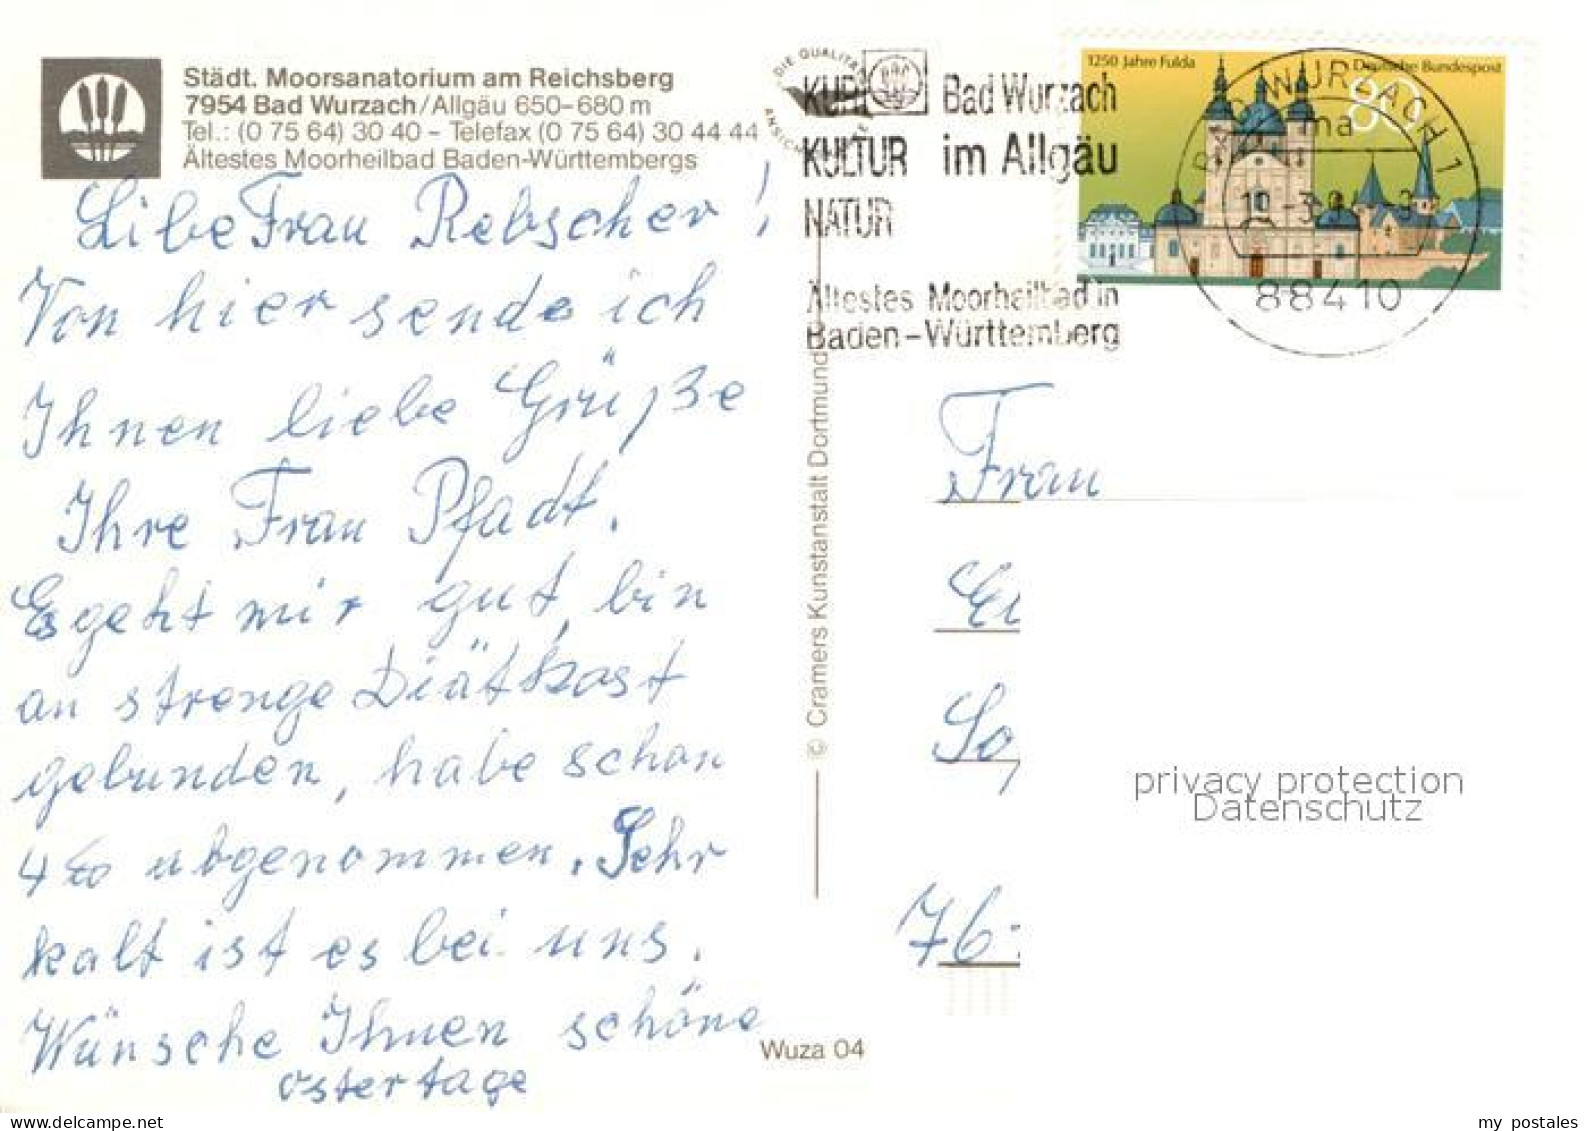 Städt. Moorsanatorium am Reichsberg
7954 Bad Wurzach/Allgäu 650–680 m
Tel.: (0 75 64) 30 40 – Telefax (0 75 64) 30 44 44
Ältestes Moorheilbad Baden-Württembergs
Libe Frau Rebscher!
Von hier sende ich
Ihnen liebe Grüße
Ihre Frau Pfadt.
Es geht mir gut, bin
an strenge Diätkost
gebunden, habe schon
4 abgenommen. Sehr
kalt ist es bei uns.
Wünsche Ihnen schöne
ostertage
DIE QUALITÄTS
ANSICHT
KUR
KULTUR
NATUR
Bad Wurzach
im Allgäu
Ältestes Moorheilbad in
Baden-Württemberg
1250 Jahre Fulda
Deutsche Bundespost
80
BAD WURZACH 1
ma
88410
© Cramers Kunstanstalt Dortmund
Frau
So
76
Wuza 04
privacy protection
Datenschutz
my postales